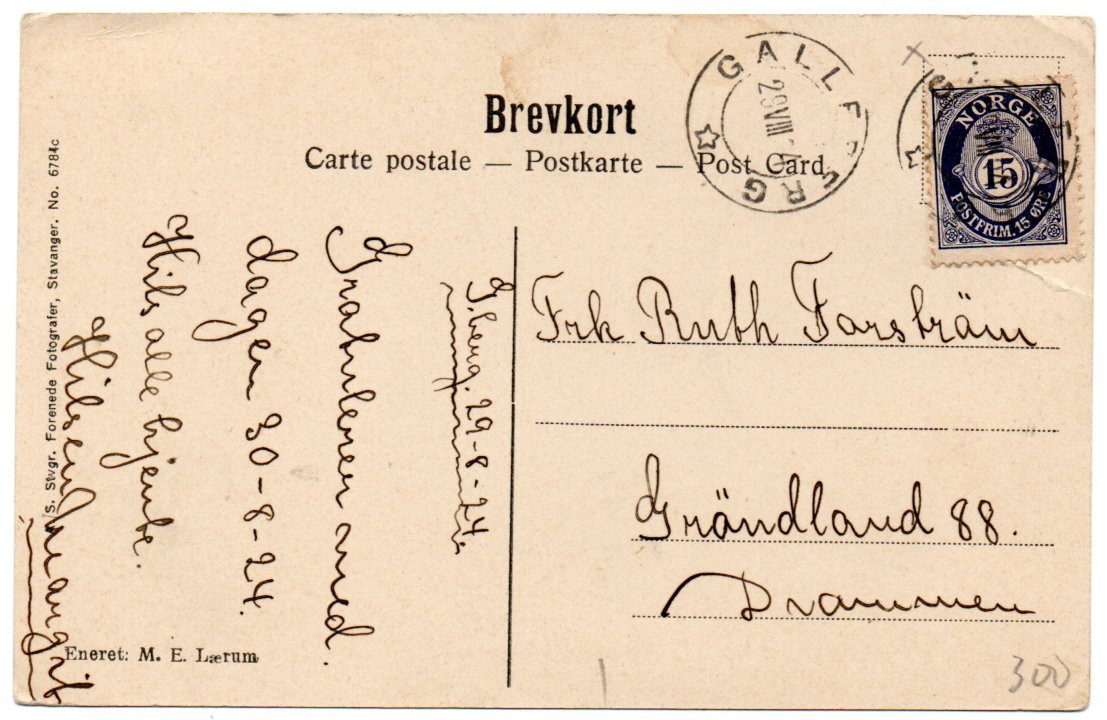 Brevkort
Carte postale — Postkarte — Post Card
GALLEBERG
29 VIII
NORGE
15
POSTFRIM. 15 ØRE
G.berg. 29-8-24.
Gratulerer med
dagen 30-8-24.
Hils alle hjemte.
Hilsen Margit
Frk Ruth Forsbräm
Gröndland 88.
Drammen
S. Stwgr. Forenede Fotografer, Stavanger. No. 6784c
Eneret: M. E. Lærum
300